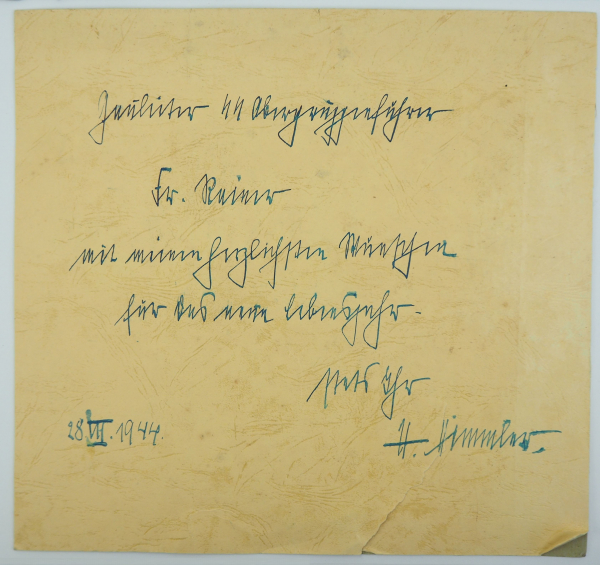 Gauleiter SS Obergruppenführer
Fr. Rainer
mit meinen herzlichsten Wünschen
für das neue Lebensjahr.
Stets Ihr
H. Himmler.
28.VII.1944.